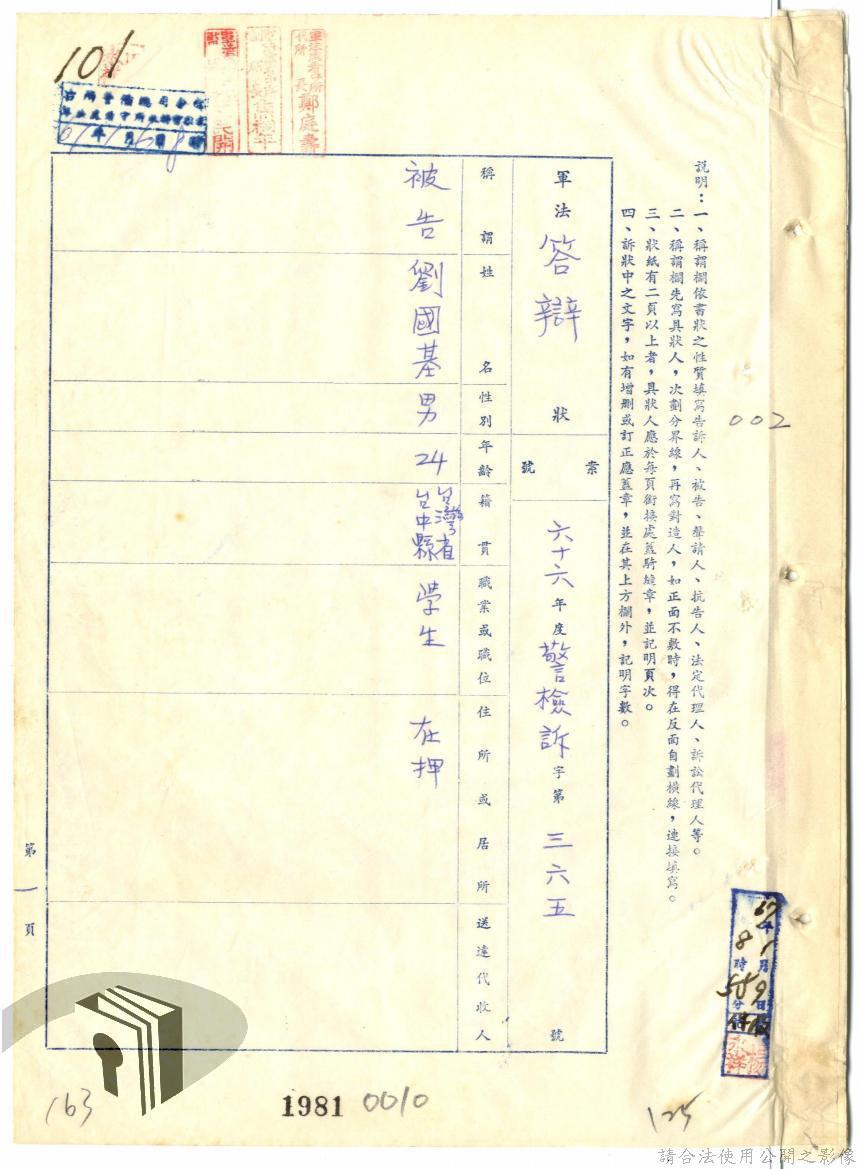 說明：一、稱謂欄依書狀之性質填寫告訴人、被告、聲請人、抗告人、法定代理人、訴訟代理人等。
二、稱謂欄先寫具狀人，次劃分界線，再寫對造人，如正面不敷時，得在反面自劃橫線，連接填寫。
三、狀紙有二頁以上者，具狀人應於每頁銜接處蓋騎縫章，並記明頁次。
四、訴狀中之文字，如有增刪或訂正應蓋章，並在其上方欄外，記明字數。
軍法答辯狀
案號
六十六年度警檢訴字第三六五號
稱謂
姓名
性別
年齡
籍貫
職業或職位
住所或居所
送達代收人
被告
劉國基
男
24
台灣省
台中縣
學生
在押
第一頁
101
002
163
1981 0010
125
請合法使用公開之影像